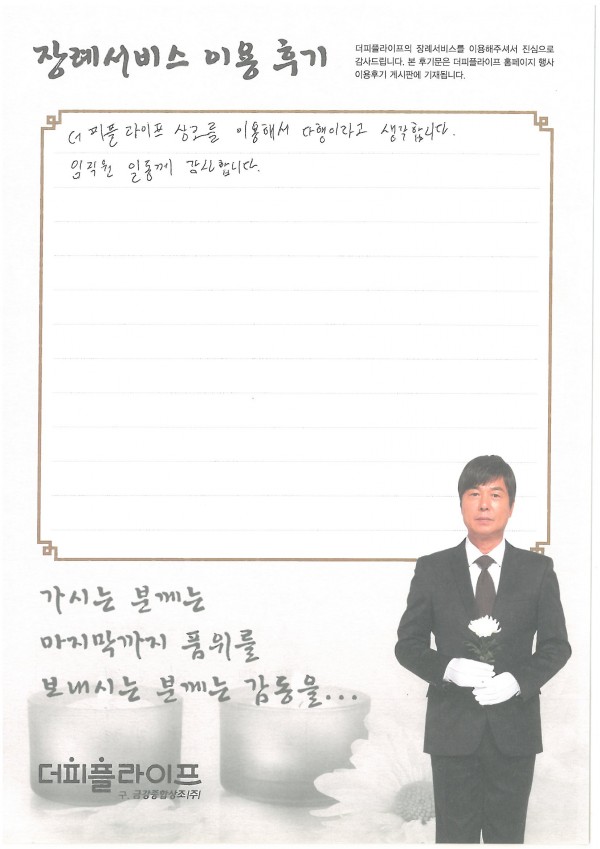 장례서비스 이용 후기
더피플라이프의 장례서비스를 이용해주셔서 진심으로
감사드립니다. 본 후기문은 더피플라이프 홈페이지 행사
이용후기 게시판에 기재됩니다.
더 피플 라이프 상조를 이용해서 다행이라고 생각합니다.
임직원 일동께 감사합니다.
가시는 분께는
마지막까지 품위를
보내시는 분께는 감동을...
더피플라이프
구. 금강종합상조(주)